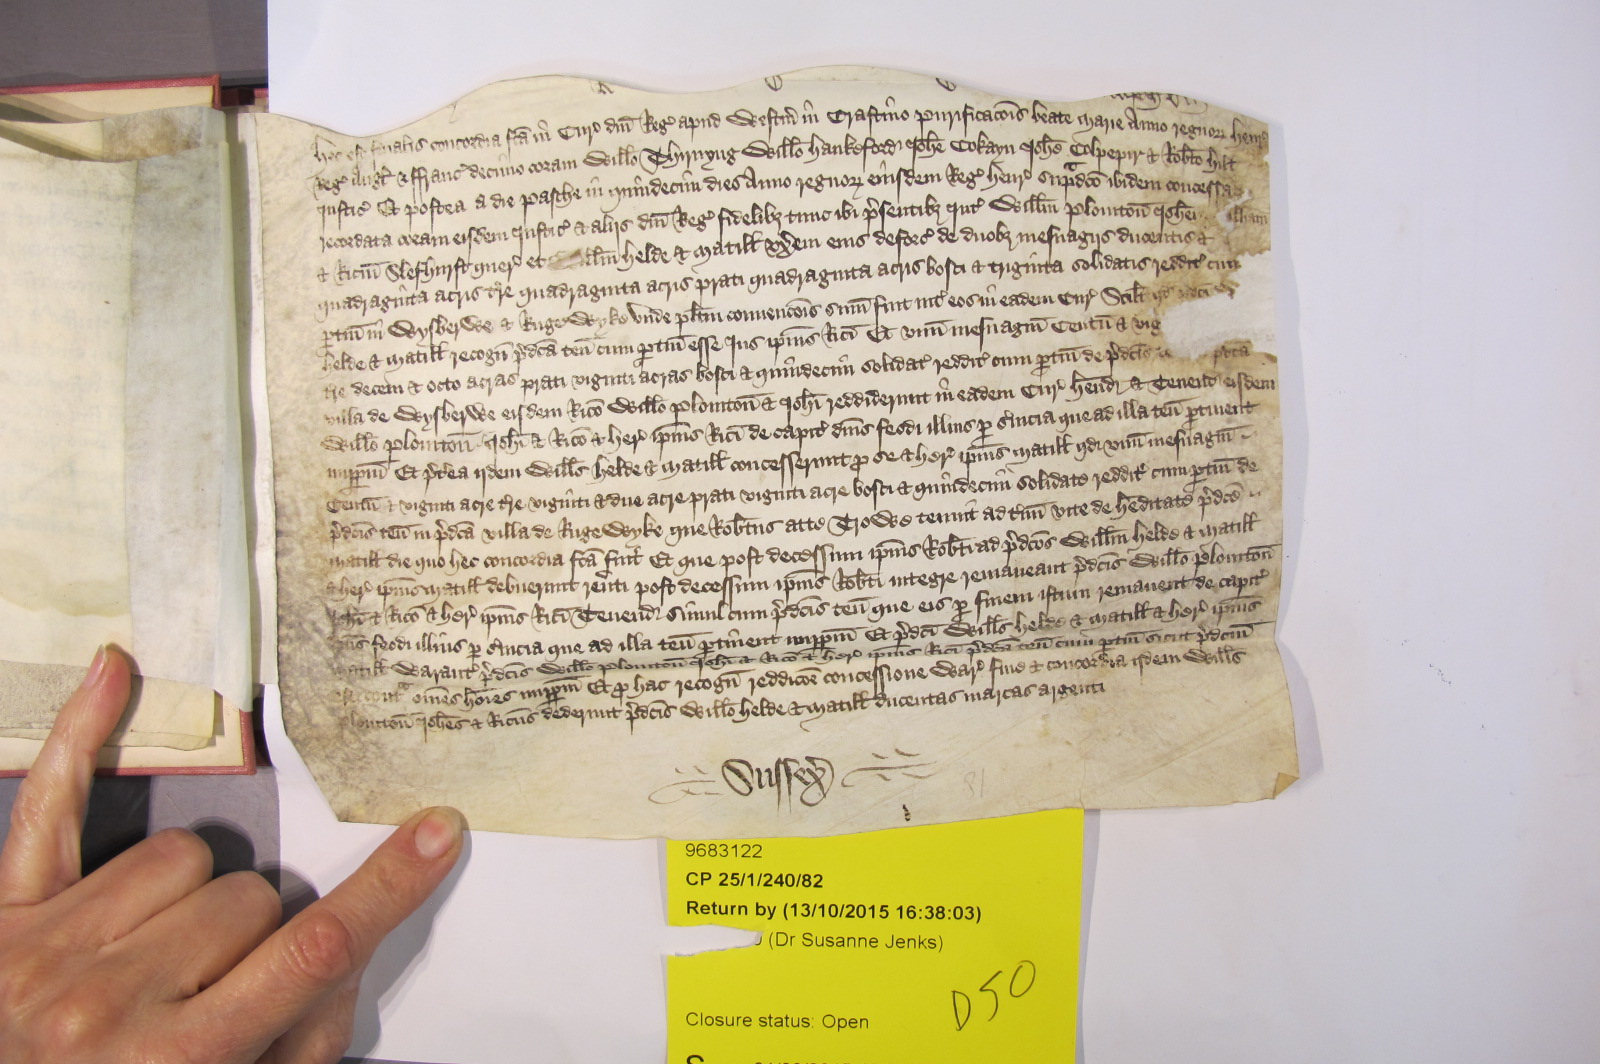 hec est finalis concordia fca in Cur dni Reg apud Westm in Crastino purificacois beate marie Anno regnor henr
Reg Angl & ffranc decimo coram Willo Thirnyng Willo hankeford Johe Cokayn Johe Colpepir & Robto hill
Justic Et postea a die pasche in quindecim dies Anno regnor eiusdem Reg henr supradco ibidem concessa
recordata coram eisdem Justic & alijs dni Reg fidelibz tunc ibi psentibz int Willm Plomton Johem
& Ricm Slefhurst quer et Willm helde & matill vxem eius deforc de duobz mesuagijs ducentis &
quadraginta acris tre quadraginta acris prati quadraginta acris bosci & triginta solidatis reddit cum
ptin in Wysberwe & Rugewyke vnde plitm convencois sum fuit int eos in eadem Cur Scilt qd
helde & matill recogn pdca ten cum ptin esse Jus ipius Rici Et vnum mesuagium Centu & vig
tre decem & octo acras prati viginti acras bosci & quindecim solidat reddit cum ptin de pdcis pdca
villa de Wysberwe eisdem Rico Willo Plomton & Johi reddiderunt in eadem Cur hend & Tenend eisdem
Willo Plomton Johi & Rico & her ipius Rici de capit dnis feodi illius p sruicia que ad illa ten ptinent
imppm Et pterea ijdem Wills helde & matill concesserunt p se & her ipius matill qd vnum mesuagium
Centu & viginti acre tre viginti & due acre prati viginti acre bosci & quindecim solidate reddit cum ptin de
pdcis ten in pdca villa de Rugewyke que Robtus atte Trowe tenuit ad tminu vite de hereditate pdce
matill die quo hec concordia fca fuit Et que post decessum ipius Robti ad pdcos Willm helde & matill
& her ipius matill debuerunt reuti post decessum ipius Robti integre remaneant pdcis Willo Plomton
Johi & Rico & her ipius Rici Tenend simul cum pdcis ten que eis p finem istum remanent de capit
dnis feodi illius p sruicia que ad illa ten ptinent imppm Et pdci Wills helde & matill & her ipius
matill Warant pdcis Willo Plomton Johi & Rico & her ipius Rici pdca ten cum ptin sicut pdcm
est cont omes hoies imppm Et p has recogn reddicoe concessione War fine & concordia ijdem Wills
Plomton Johes & Ricus dederunt pdcis Willo helde & matill ducentas marcas argenti
Sussex
81
9683122
CP 25/1/240/82
Return by (13/10/2015 16:38:03)
(Dr Susanne Jenks)
D50
Closure status: Open